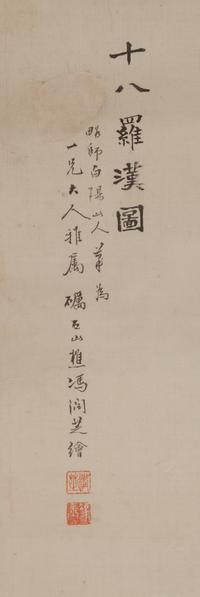 十八羅漢圖
略師白陽山人筆為
一兄大人雅屬 礪石山樵馮潤芝繪